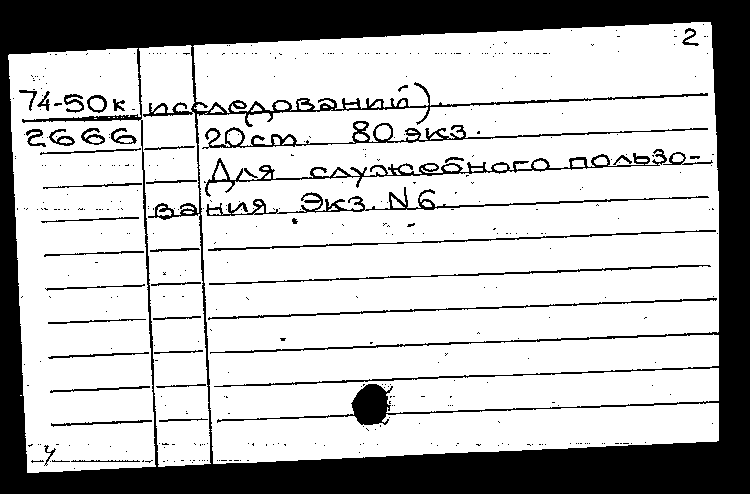 2
74-50к исследований).
2666 20 ст. 80 экз.
Для служебного пользо-
вания. Экз. N 6.